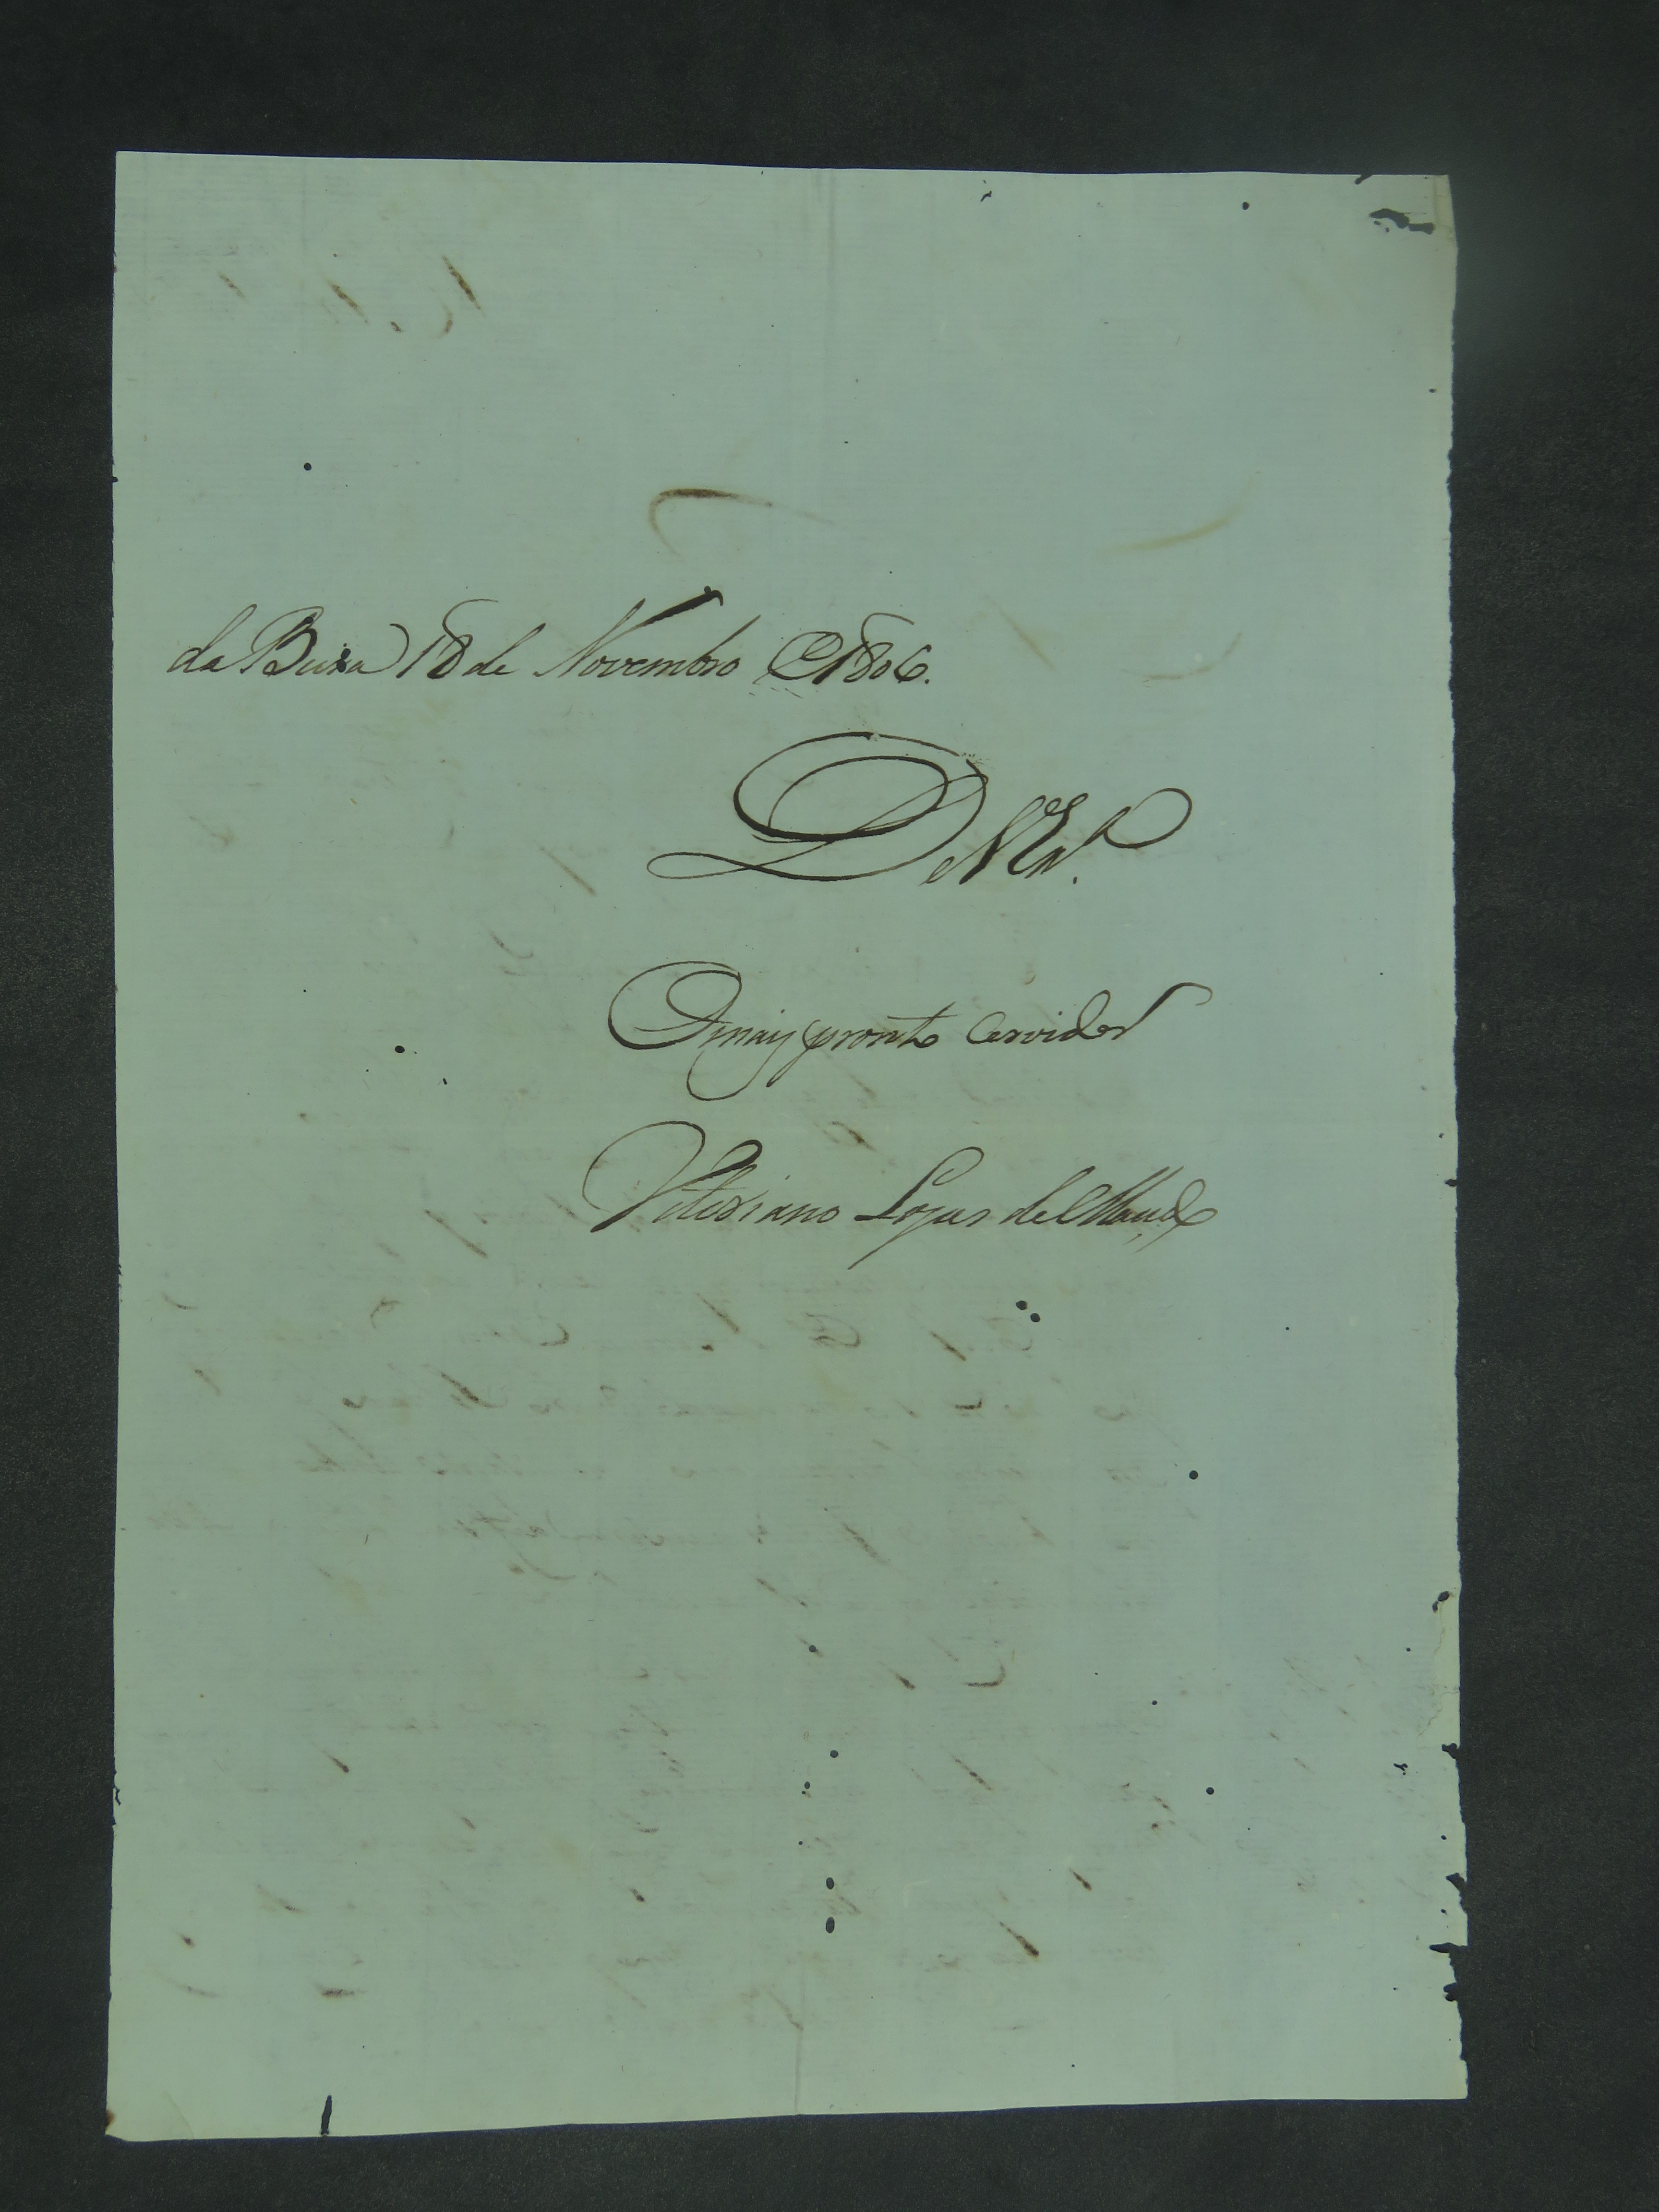 da Beira 18 de Novembro de 1806.
De V Exa.
O mais pronto Servidor
Vitoriano Lopes de Maced.o